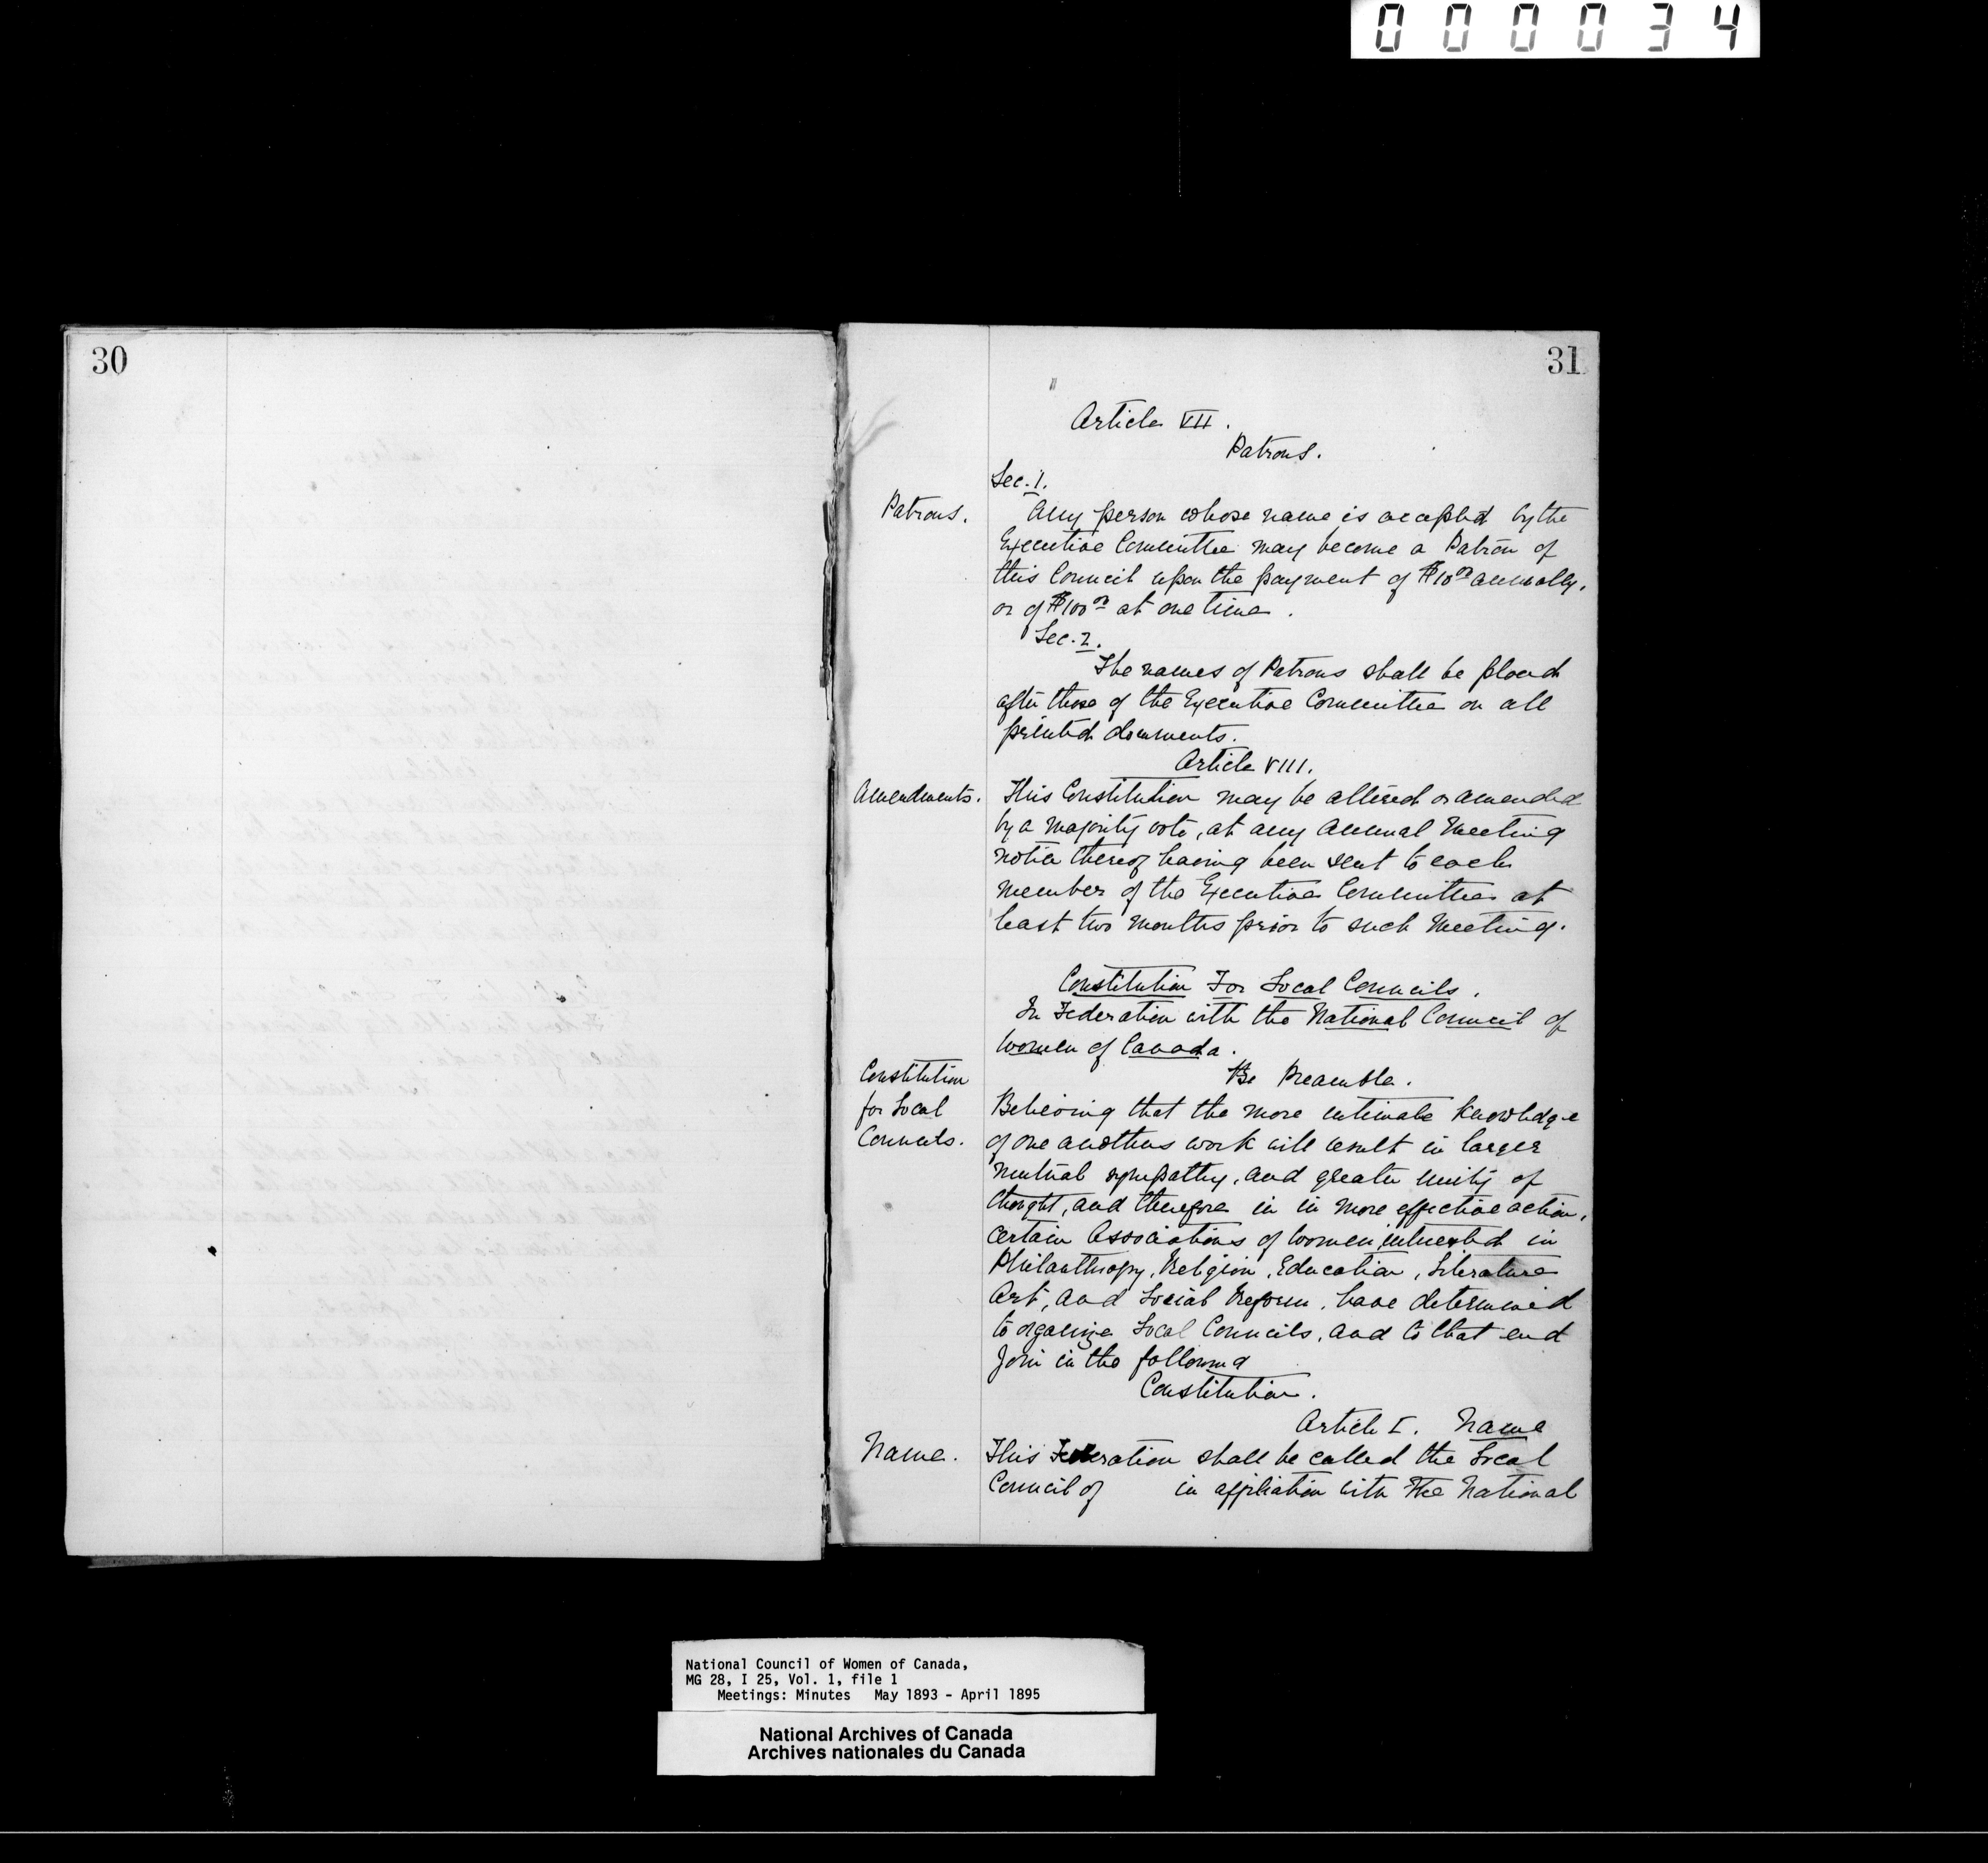 000034
30
31
Article VII.
Patrons.
Sec. 1.
Patrons.
Any person whose name is accepted by the
Executive Committee may become a Patron of
this Council upon the payment of $10.00 annually,
or of $100.00 at one time.
Sec. 2.
The names of Patrons shall be placed
after those of the Executive Committee on all
printed documents.
Article VIII.
Amendments.
This Constitution may be altered or amended
by a majority vote, at any Annual Meeting
notice thereof having been sent to each
member of the Executive Committee at
least two months prior to such Meeting.
Constitution For Local Councils.
In Federation with the National Council of
Women of Canada.
Constitution
for Local
Councils.
Preamble.
Believing that the more intimate knowledge
of one anothers work will result in larger
mutual sympathy, and greater unity of
thought, and therefore in in more effective action,
certain Associations of women, interested in
Philanthropy, Religion, Education, Literature
Art, and Social Reform, have determined
to organize Local Councils, and to that end
join in the following
Constitution.
Article I. Name
Name.
This Federation shall be called the Local
Council of in affiliation with The National
National Council of Women of Canada,
MG 28, I 25, Vol. 1, file 1
Meetings: Minutes May 1893 - April 1895
National Archives of Canada
Archives nationales du Canada